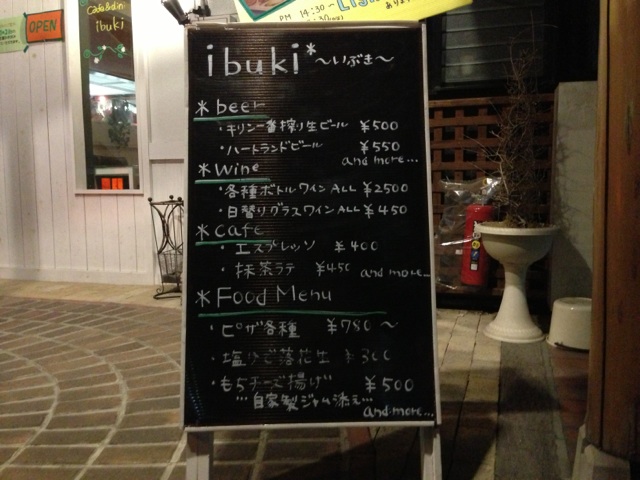 Cafe&din
ibuki
OPEN
PM 14:30~
ibuki* ~いぶき~
*beer
・キリン一番搾り生ビール ¥500
・ハートランドビール ¥550
and more...
*Wine
・各種ボトルワイン ALL ¥2500
・日替りグラスワイン ALL ¥450
*Cafe
・エスプレッソ ¥400
・抹茶ラテ ¥450 and more...
*Food Menu
・ピザ各種 ¥780~
・塩ゆで落花生 ¥300
・もちチーズ揚げ ¥500
…自家製ジャム添え…
and more...